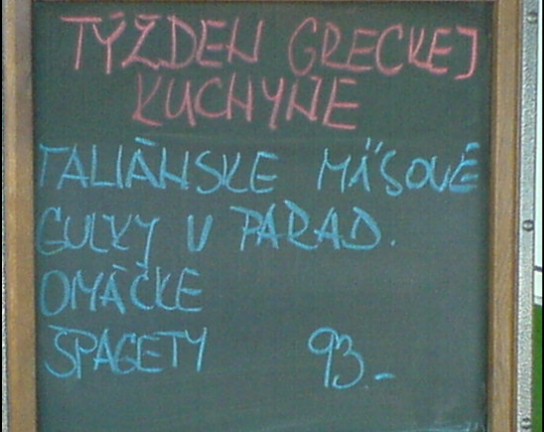 TÝŽDEN GRECKEJ
KUCHYNE
TALIÁNSKE MÄSOVÉ
GULKY V PARAD.
OMÁČKE
ŠPAGETY 93.-